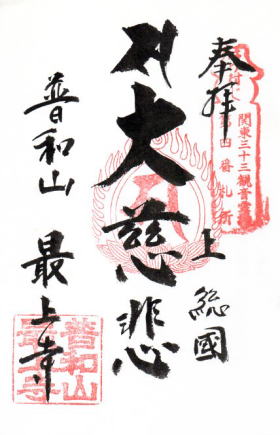 奉拝
上総國
大慈悲
普和山
最上寺
関東三十三観音霊
第四番札所
普和山
最上寺